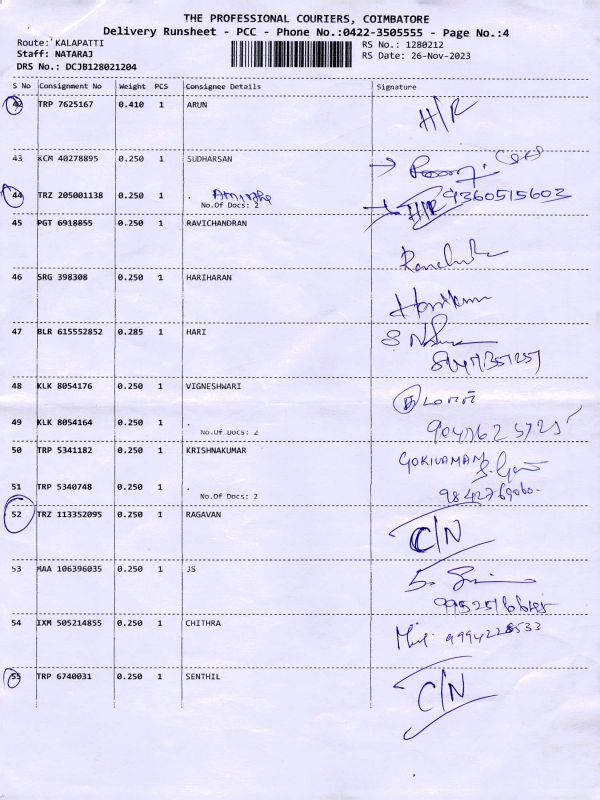 THE PROFESSIONAL COURIERS, COIMBATORE
Delivery Runsheet - PCC - Phone No.:0422-3505555 - Page No.:4
Route: KALAPATTI
Staff: NATARAJ
DRS No.: DCJB128021204
RS No.: 1280212
RS Date: 26-Nov-2023
S No Consignment No Weight PCS Consignee Details Signature
42 TRP 7625167 0.410 1 ARUN H/R
43 KCM 40278895 0.250 1 SUDHARSAN
44 TRZ 205001138 0.250 1 . H/R 9360515603
No.Of Docs: 2
45 PGT 6918855 0.250 1 RAVICHANDRAN
46 SRG 398308 0.250 1 HARIHARAN
47 BLR 615552852 0.285 1 HARI
48 KLK 8054176 0.250 1 VIGNESHWARI
49 KLK 8054164 0.250 1 .
No.Of Docs: 2
50 TRP 5341182 0.250 1 KRISHNAKUMAR
51 TRP 5340748 0.250 1 .
No.Of Docs: 2
52 TRZ 113352095 0.250 1 RAGAVAN C/N
53 MAA 106396035 0.250 1 JS
54 IXM 505214855 0.250 1 CHITHRA
55 TRP 6740031 0.250 1 SENTHIL C/N